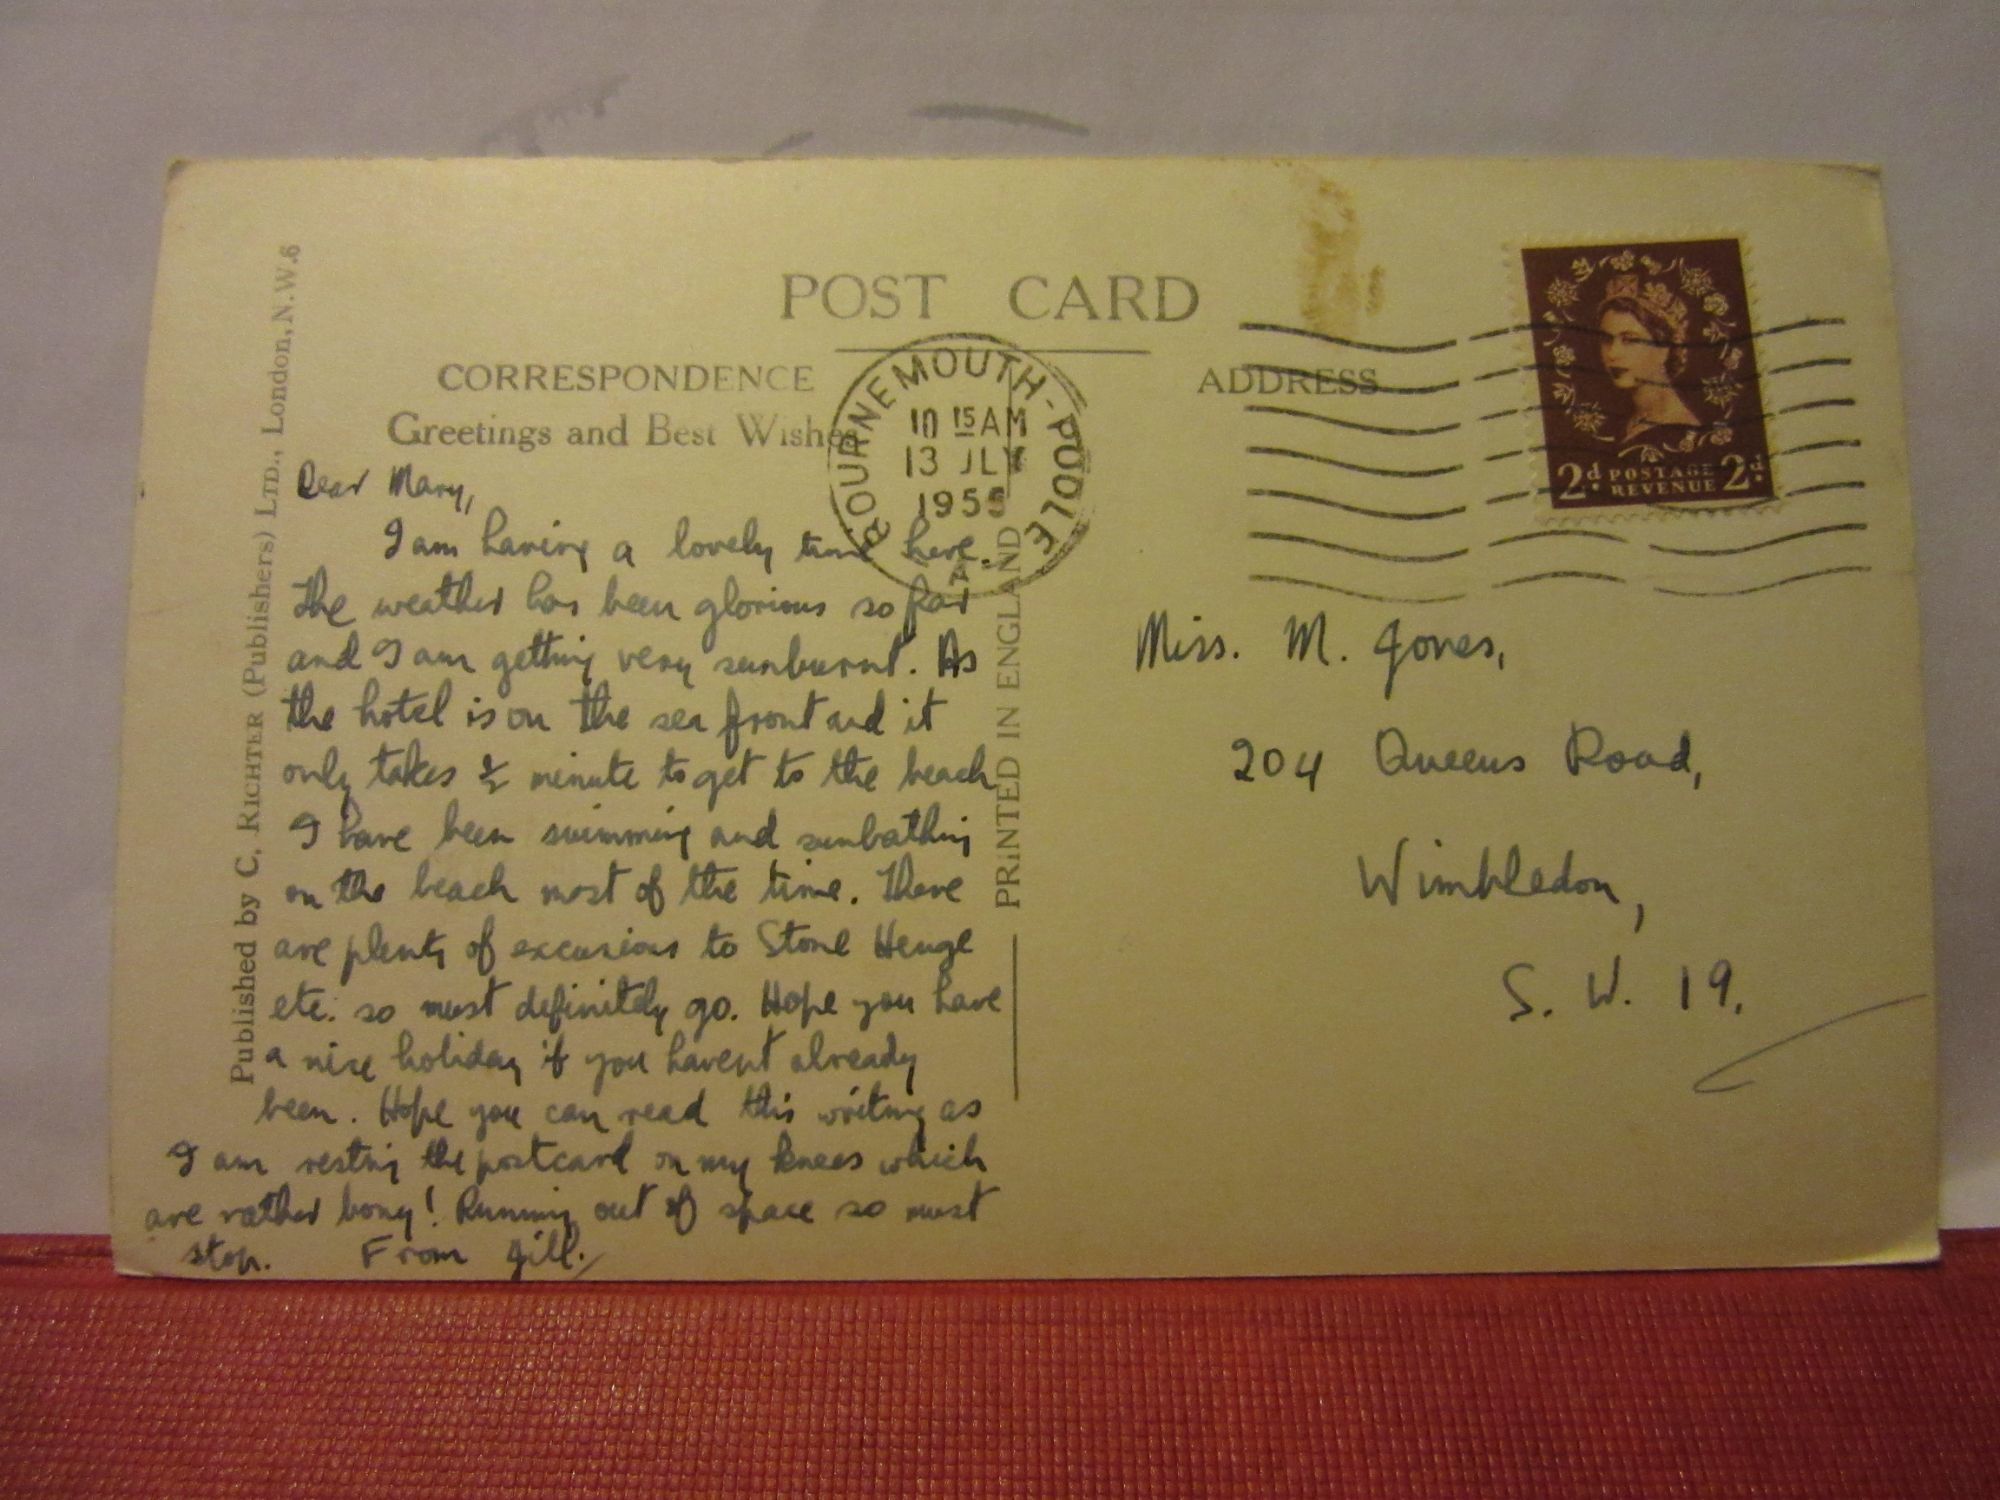 POST CARD
CORRESPONDENCE
ADDRESS
Greetings and Best Wishes
Published by C. RICHTER (Publishers) LTD., London, N.W.6
PRINTED IN ENGLAND
BOURNEMOUTH-POOLE
10 15 AM
13 JLY
1955
A
2d. POSTAGE 2d.
REVENUE
Dear Mary,
I am having a lovely time here.
The weather has been glorious so far
and I am getting very sunburnt. As
the hotel is on the sea front and it
only takes ½ minute to get to the beach
I have been swimming and sunbathing
on the beach most of the time. There
are plenty of excursions to Stone Henge
etc. so must definitely go. Hope you have
a nice holiday if you havent already
been. Hope you can read this writing as
I am resting the postcard on my knees which
are rather bony! Running out of space so must
stop. From Jill.
Miss. M. Jones,
204 Queens Road,
Wimbledon,
S. W. 19.